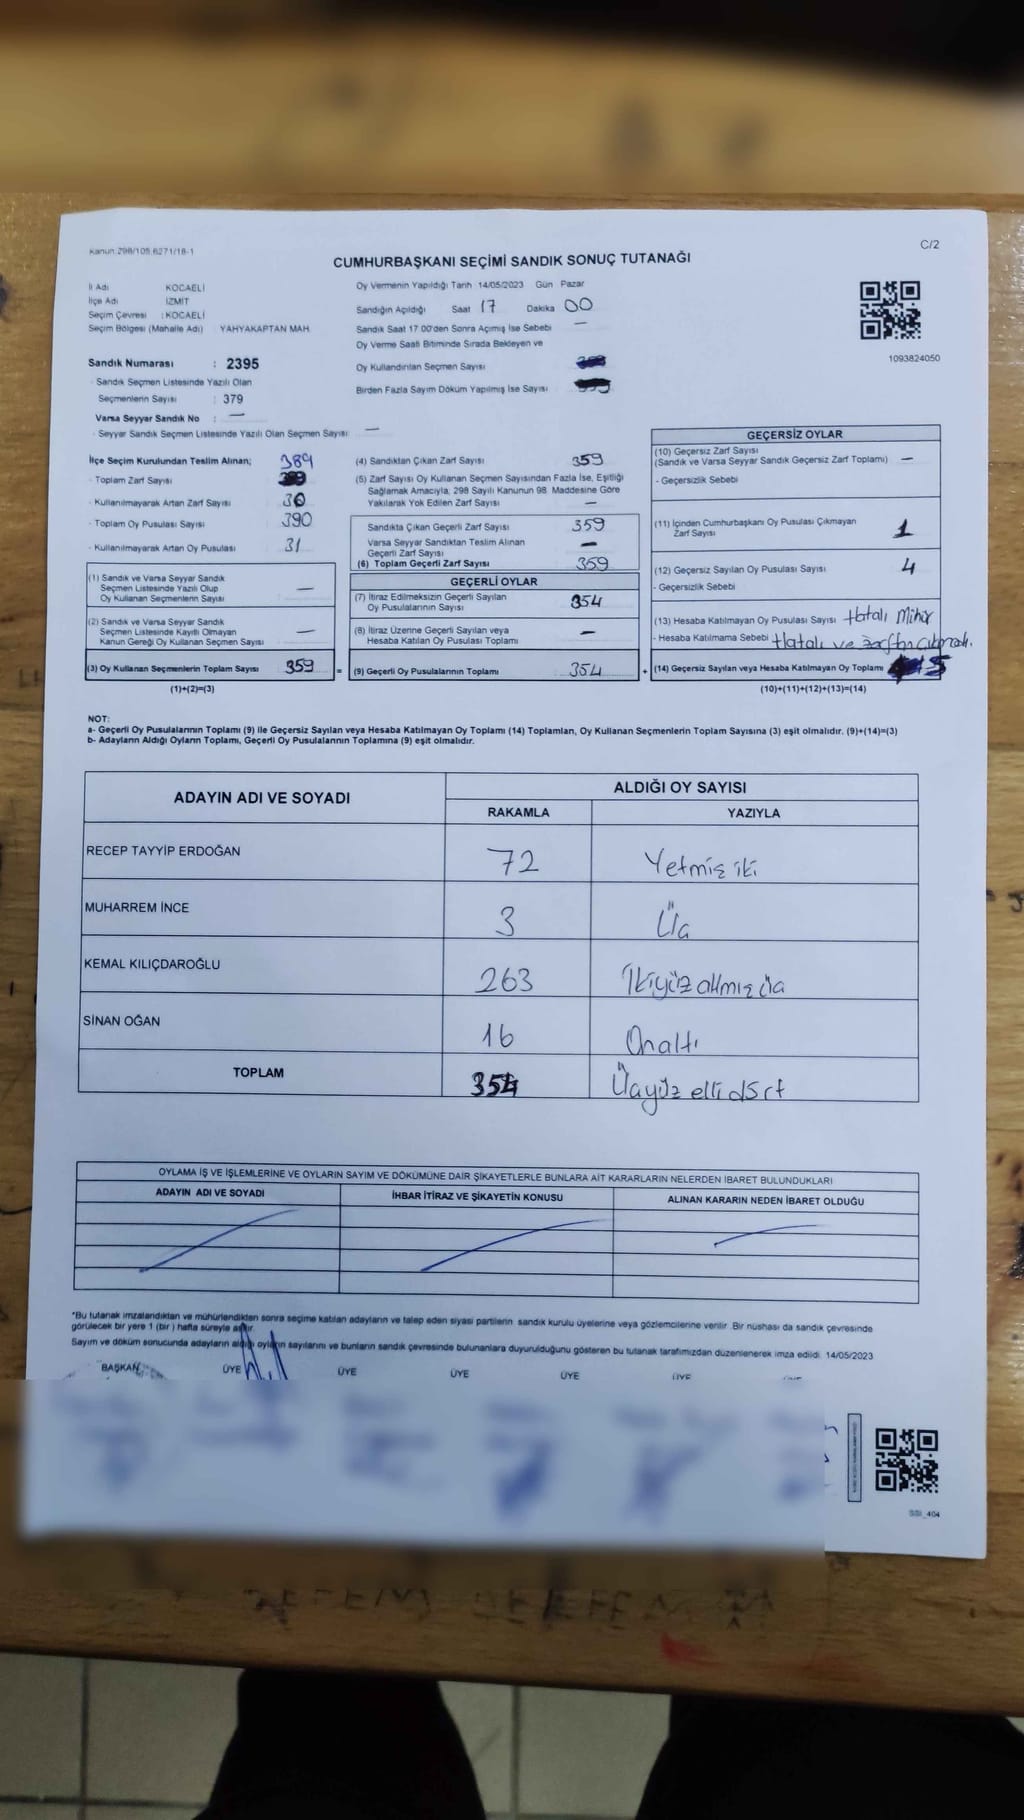 Kanun 298/105,6271/18-1
C/2
CUMHURBAŞKANI SEÇİMİ SANDIK SONUÇ TUTANAĞI
İl Adı KOCAELİ
İlçe Adı İZMİT
Seçim Çevresi : KOCAELİ
Seçim Bölgesi (Mahalle Adı) YAHYAKAPTAN MAH.
Sandık Numarası : 2395
- Sandık Seçmen Listesinde Yazılı Olan
Seçmenlerin Sayısı : 379
Varsa Seyyar Sandık No : —
- Seyyar Sandık Seçmen Listesinde Yazılı Olan Seçmen Sayısı —
Oy Vermenin Yapıldığı Tarih 14/05/2023 Gün Pazar
Sandığın Açıldığı Saat 17 Dakika 00
Sandık Saat 17.00'den Sonra Açılmış İse Sebebi —
Oy Verme Saati Bitiminde Sırada Bekleyen ve
Oy Kullandırılan Seçmen Sayısı
Birden Fazla Sayım Döküm Yapılmış İse Sayısı
1093824050
İlçe Seçim Kurulundan Teslim Alınan; 389
- Toplam Zarf Sayısı
- Kullanılmayarak Artan Zarf Sayısı 30
- Toplam Oy Pusulası Sayısı 390
- Kullanılmayarak Artan Oy Pusulası 31
(1) Sandık ve Varsa Seyyar Sandık
Seçmen Listesinde Yazılı Olup
Oy Kullanan Seçmenlerin Sayısı —
(2) Sandık ve Varsa Seyyar Sandık
Seçmen Listesinde Kayıtlı Olmayan
Kanun Gereği Oy Kullanan Seçmen Sayısı —
(3) Oy Kullanan Seçmenlerin Toplam Sayısı 359 =
(1)+(2)=(3)
(4) Sandıktan Çıkan Zarf Sayısı 359
(5) Zarf Sayısı Oy Kullanan Seçmen Sayısından Fazla İse, Eşitliği
Sağlamak Amacıyla, 298 Sayılı Kanunun 98. Maddesine Göre
Yakılarak Yok Edilen Zarf Sayısı —
Sandıkta Çıkan Geçerli Zarf Sayısı 359
Varsa Seyyar Sandıktan Teslim Alınan
Geçerli Zarf Sayısı —
(6) Toplam Geçerli Zarf Sayısı 359
GEÇERLİ OYLAR
(7) İtiraz Edilmeksizin Geçerli Sayılan
Oy Pusulalarının Sayısı 354
(8) İtiraz Üzerine Geçerli Sayılan veya
Hesaba Katılan Oy Pusulası Toplamı —
(9) Geçerli Oy Pusulalarının Toplamı 354 +
GEÇERSİZ OYLAR
(10) Geçersiz Zarf Sayısı
(Sandık ve Varsa Seyyar Sandık Geçersiz Zarf Toplamı) —
- Geçersizlik Sebebi
(11) İçinden Cumhurbaşkanı Oy Pusulası Çıkmayan
Zarf Sayısı 1
(12) Geçersiz Sayılan Oy Pusulası Sayısı 4
- Geçersizlik Sebebi
(13) Hesaba Katılmayan Oy Pusulası Sayısı Hatalı
- Hesaba Katılmama Sebebi Hatalı ve
(14) Geçersiz Sayılan veya Hesaba Katılmayan Oy Toplamı 5
(10)+(11)+(12)+(13)=(14)
NOT:
a- Geçerli Oy Pusulalarının Toplamı (9) ile Geçersiz Sayılan veya Hesaba Katılmayan Oy Toplamı (14) Toplamları, Oy Kullanan Seçmenlerin Toplam Sayısına (3) eşit olmalıdır. (9)+(14)=(3)
b- Adayların Aldığı Oyların Toplamı, Geçerli Oy Pusulalarının Toplamına (9) eşit olmalıdır.
ADAYIN ADI VE SOYADI
ALDIĞI OY SAYISI
RAKAMLA YAZIYLA
RECEP TAYYİP ERDOĞAN 72 Yetmiş iki
MUHARREM İNCE 3 Üç
KEMAL KILIÇDAROĞLU 263 İkiyüz altmış üç
SİNAN OĞAN 16 Onaltı
TOPLAM 354 Üçyüz elli dört
OYLAMA İŞ VE İŞLEMLERİNE VE OYLARIN SAYIM VE DÖKÜMÜNE DAİR ŞİKAYETLERLE BUNLARA AİT KARARLARIN NELERDEN İBARET BULUNDUKLARI
ADAYIN ADI VE SOYADI İHBAR İTİRAZ VE ŞİKAYETİN KONUSU ALINAN KARARIN NEDEN İBARET OLDUĞU
*Bu tutanak imzalandıktan ve mühürlendikten sonra seçime katılan adayların ve talep eden siyasi partilerin sandık kurulu üyelerine veya gözlemcilerine verilir. Bir nüshası da sandık çevresinde
görülecek bir yere 1 (bir) hafta süreyle asılır.
Sayım ve döküm sonucunda adayların aldığı oyların sayılarını ve bunların sandık çevresinde bulunanlara duyurulduğunu gösteren bu tutanak tarafımızdan düzenlenerek imza edildi. 14/05/2023
BAŞKAN ÜYE ÜYE ÜYE ÜYE ÜYE
SSI_404